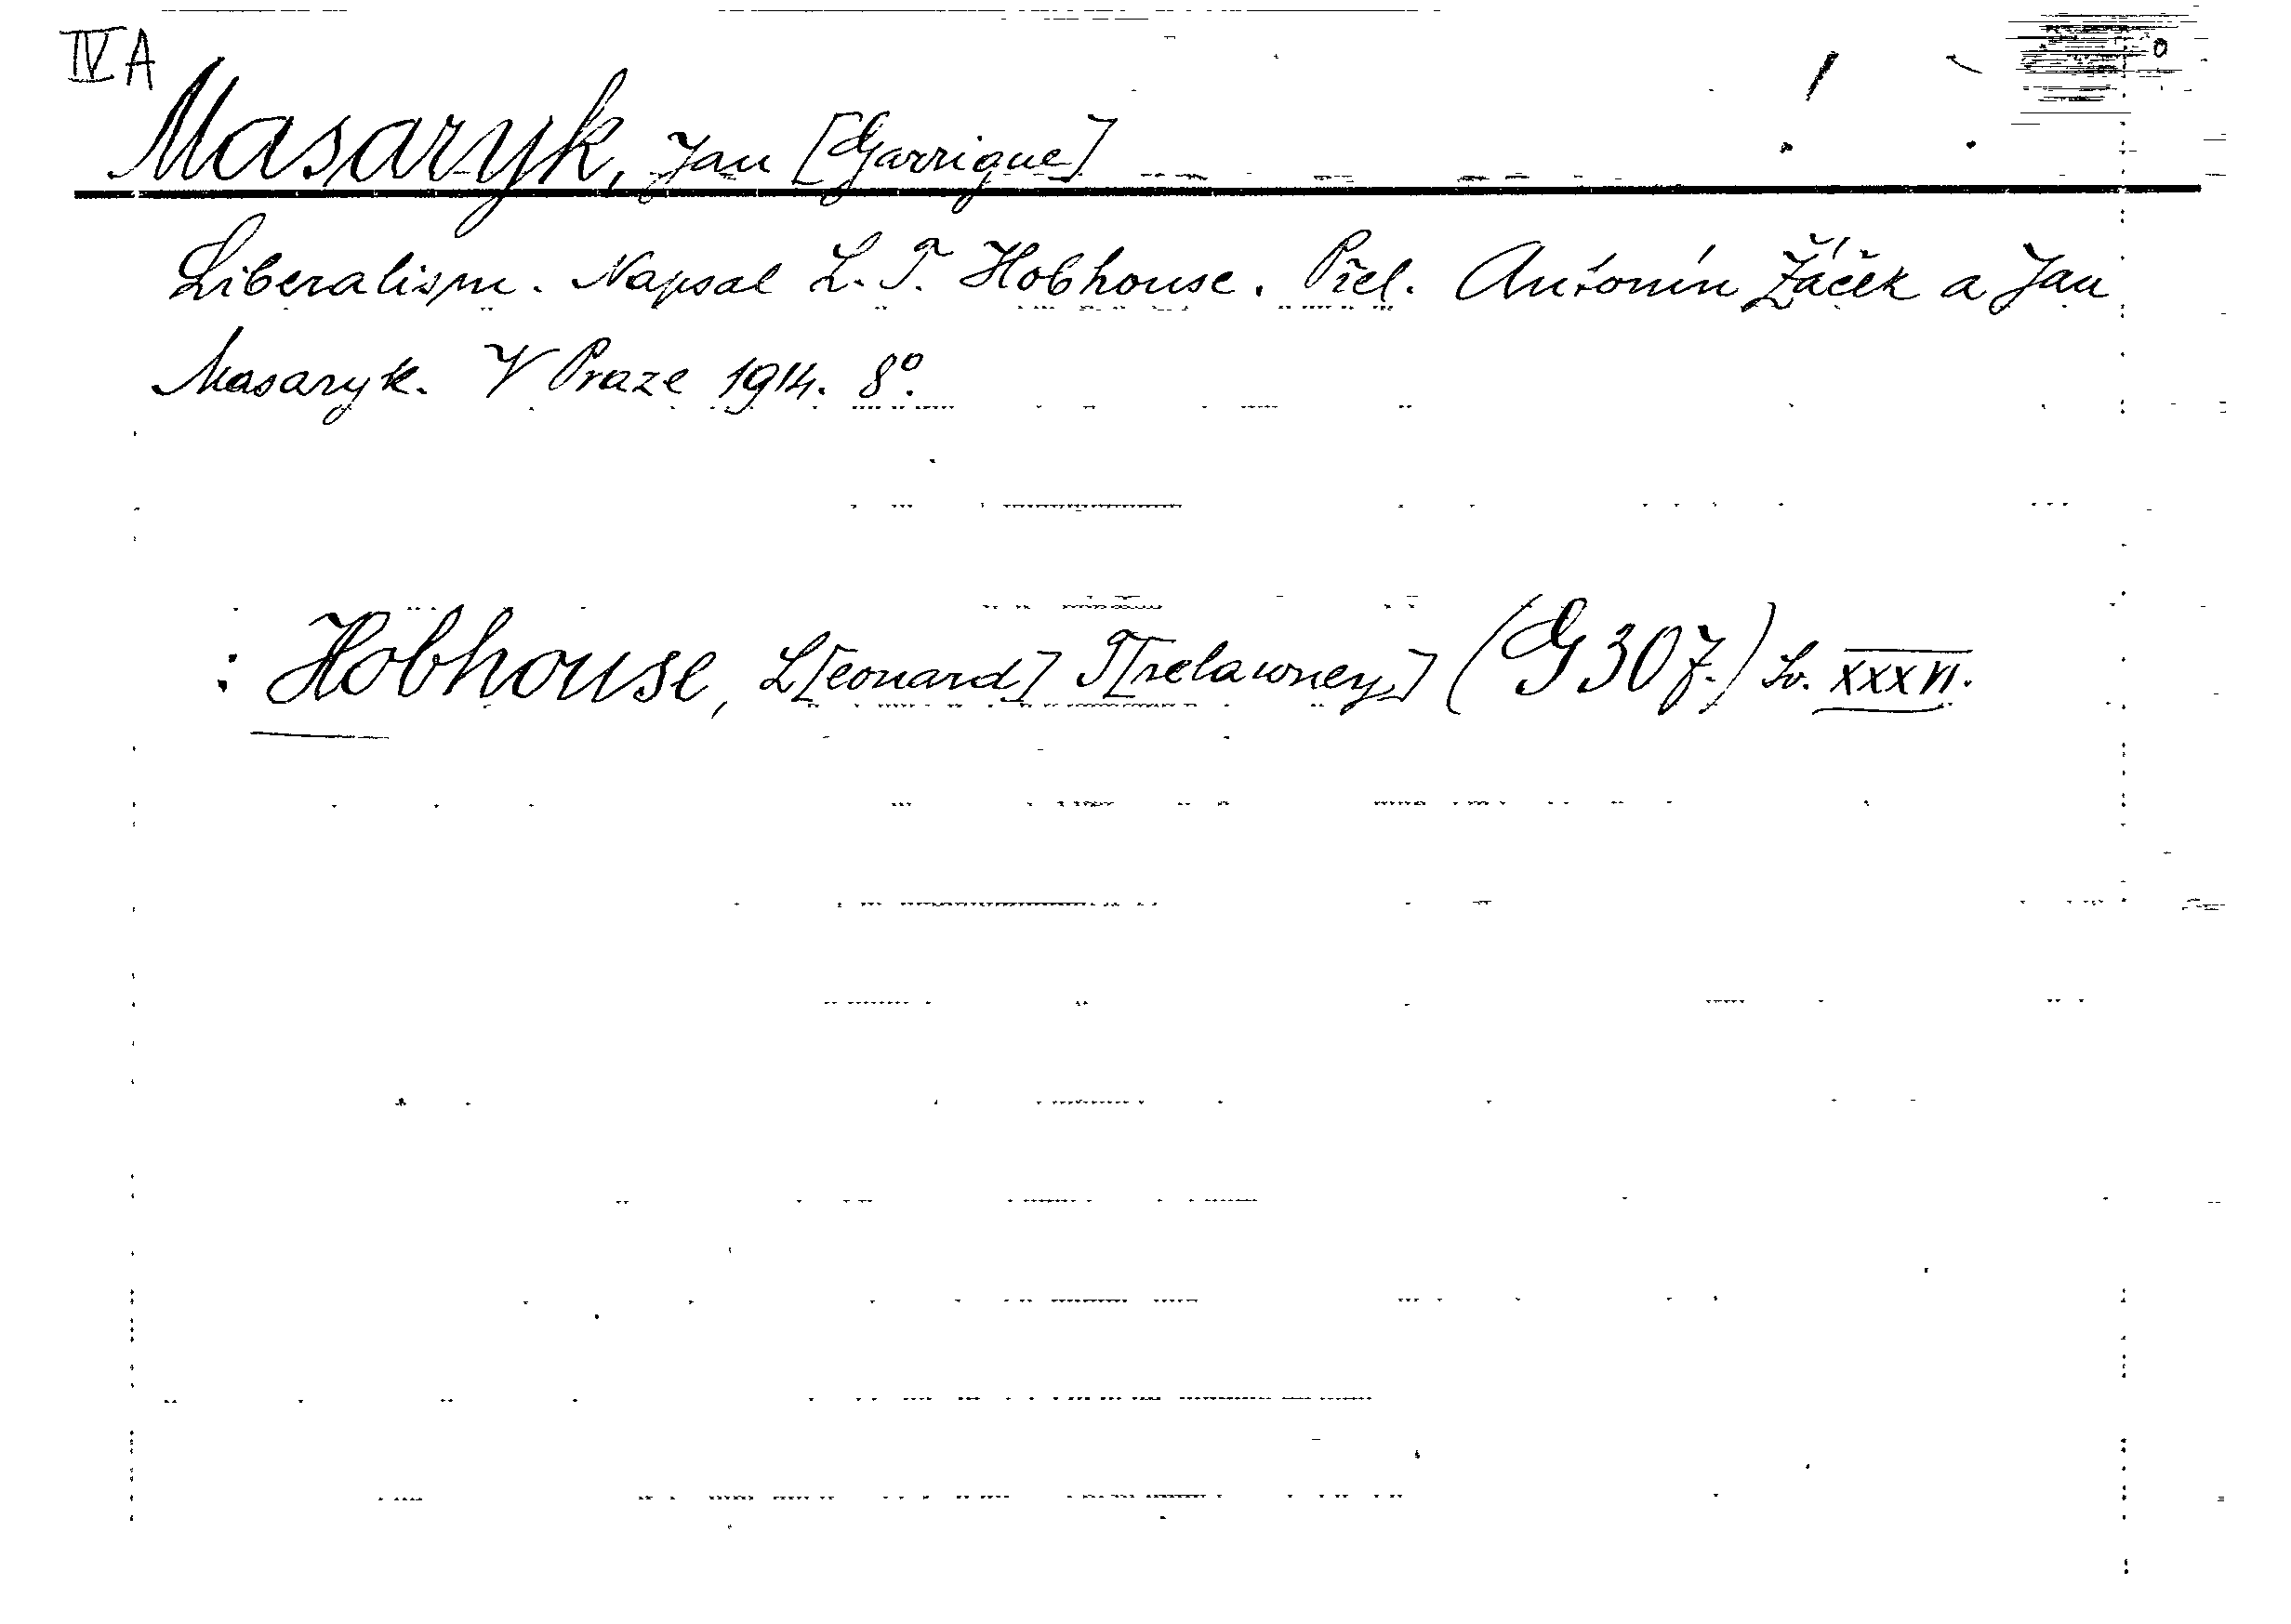 IV A
Masaryk, Jan [Garrigue]
Liberalism. Napsal L. T. Hobhouse. Přel. Antonín Žáček a Jan
Masaryk. V Praze 1914. 8º.
: Hobhouse, L[eonard] T[relawney] (G 307.) Sv. XXXVI.